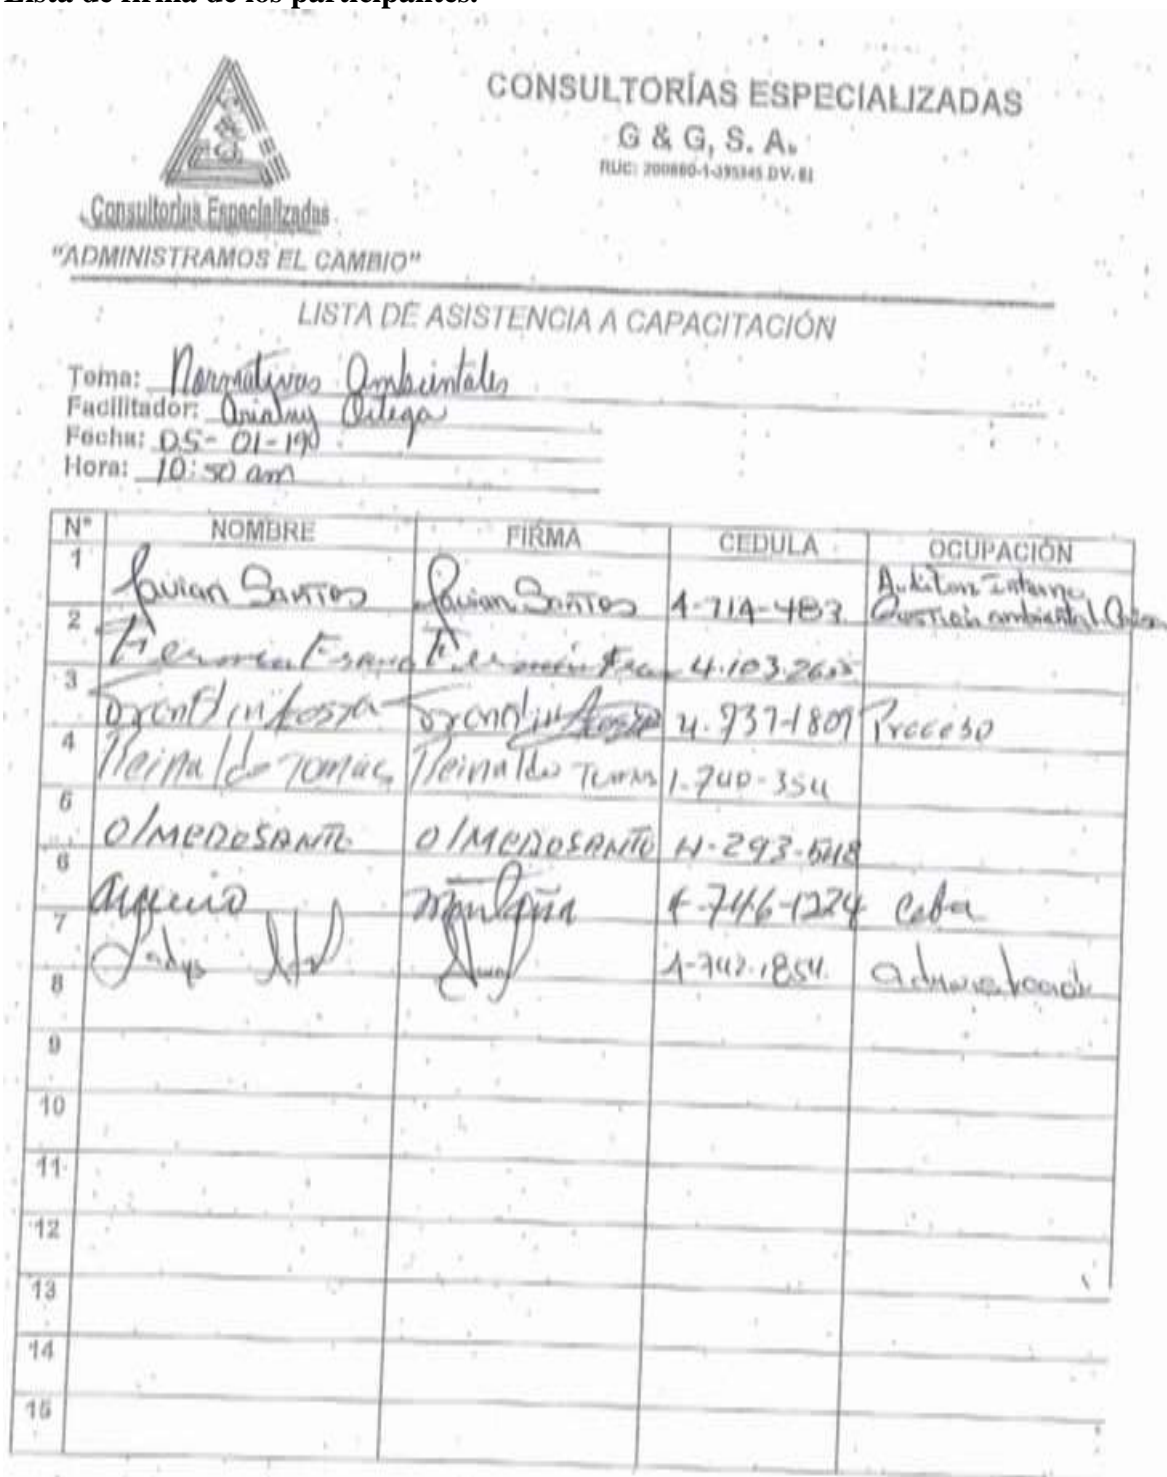 Lista de firma de los participantes.
CONSULTORÍAS ESPECIALIZADAS
G & G, S. A.
Consultorias Especializadas
"ADMINISTRAMOS EL CAMBIO"
LISTA DE ASISTENCIA A CAPACITACIÓN
Tema: Normativas Ambientales
Facilitador: Ortega
Fecha: 05-01-19
Hora: 10:50 am
N° NOMBRE FIRMA CEDULA OCUPACIÓN
1 Javian Santos Javian Santos 4-714-483 Auditor Interno
Gestión ambiental
2 4.103.
3 Franklin Acosta Franklin Acosta 4.737-1809 Proceso
4 Reinaldo Tomas Reinaldo 1-740-354
5 OlMEDOSANTO OlMEDOSANTO 4-293-548
6 Montaña 4-746-1224
7 Ladys 4-742-1854 administración
8
9
10
11
12
13
14
15